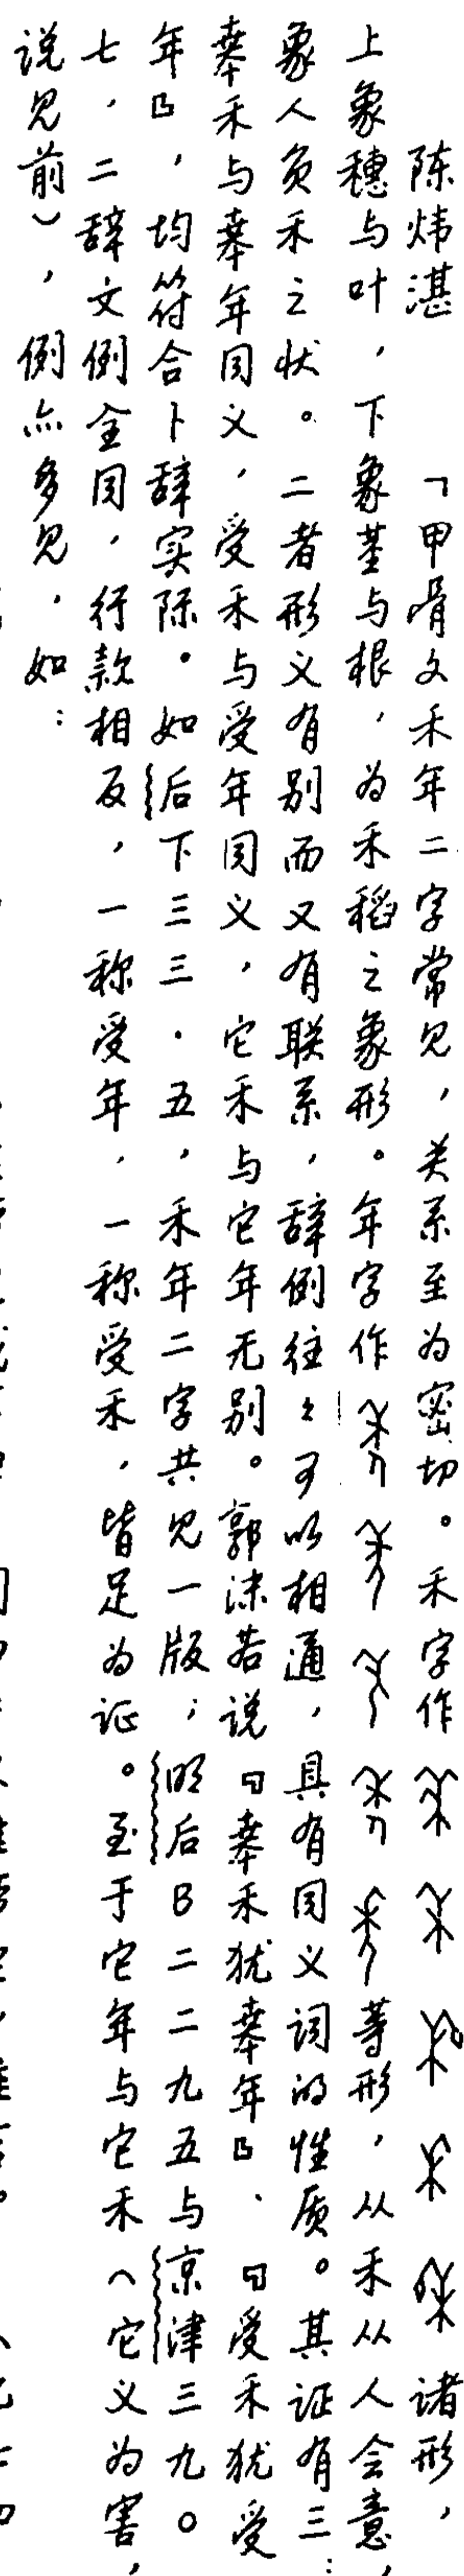 陈炜湛　「甲骨文禾年二字常见，关系至为密切。禾字作诸形，
上象穗与叶，下象茎与根，为禾稻之象形。年字作等形，从禾从人会意，
象人负禾之状。二者形义有别而又有联系，辞例往往可以相通，具有同义词的性质。其证有三：
桒禾与桒年同义，受禾与受年同义，它禾与它年无别。郭沫若说『桒禾犹桒年』、『受禾犹受
年』，均符合卜辞实际。如后下三三·五，禾年二字共见一版；明后B二二九五与京津三九〇
七，二辞文例全同，行款相反，一称受年，一称受禾，皆足为证。至于它年与它禾（它义为害，
说见前），例亦多见，如：